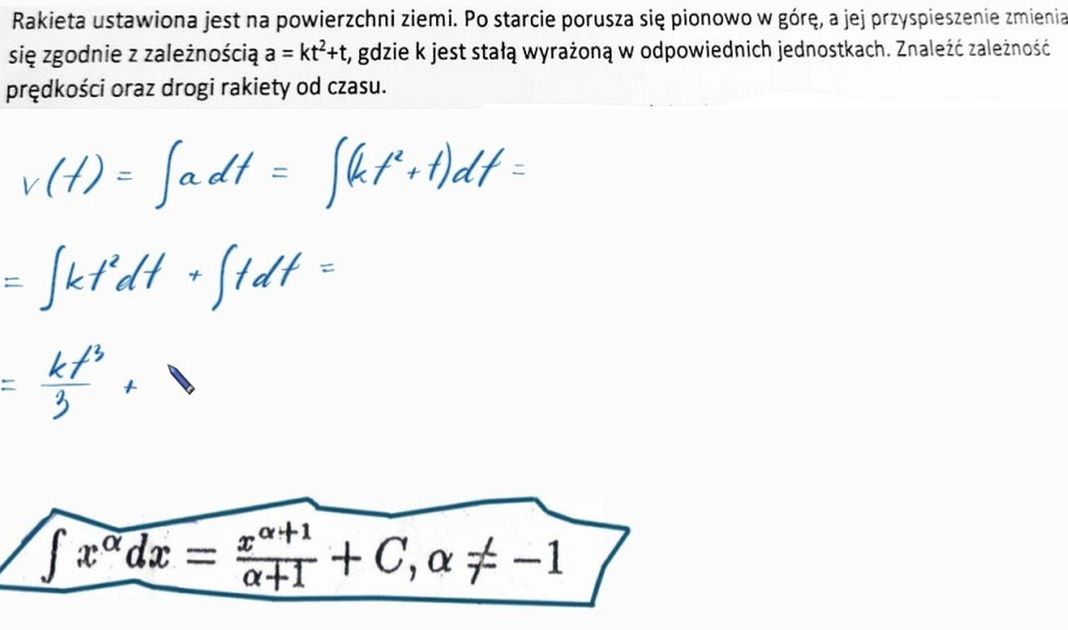 Rakieta ustawiona jest na powierzchni ziemi. Po starcie porusza się pionowo w górę, a jej przyspieszenie zmienia
się zgodnie z zależnością a = kt²+t, gdzie k jest stałą wyrażoną w odpowiednich jednostkach. Znaleźć zależność
prędkości oraz drogi rakiety od czasu.
v(t) = ∫adt = ∫(kt²+t)dt =
= ∫kt²dt + ∫tdt =
= kt³/3 +
∫x^α dx = x^(α+1)/(α+1) + C, α ≠ −1